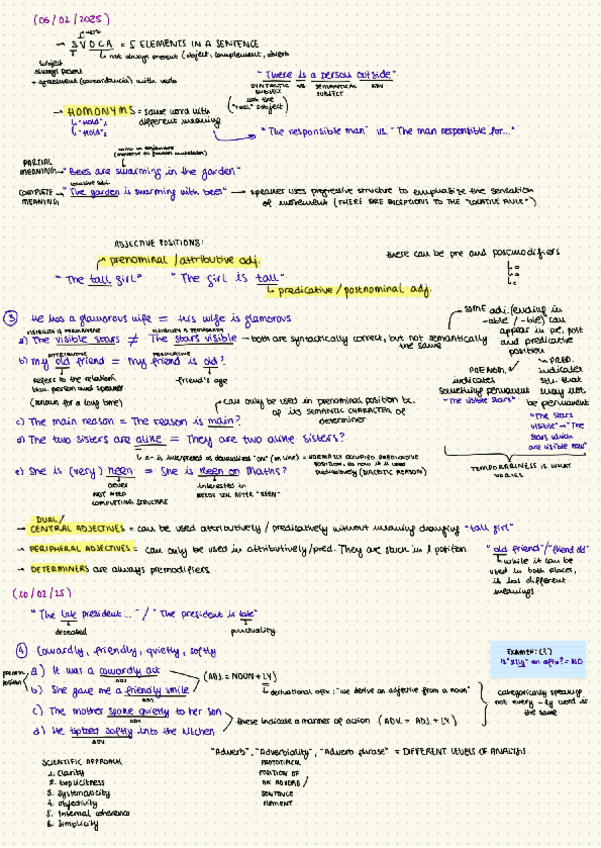 (06/02/2025)
verb
→ SVOCA = 5 ELEMENTS IN A SENTENCE
↳ not always present (object, complement, adverb
subject
always present
+ agreement (concordancia) with verb
"There is a person outside"
SYNTACTIC SUBJECT vs SEMANTICAL SUBJECT ADV
(not the "real" subject)
→ HOMONYMS = same word with different meaning
↳ "Hold"₁
↳ "Hold"₂
"The responsible man" vs. "The man responsible for..."
PARTIAL MEANING → "Bees are swarming in the garden"
COMPLETE MEANING → "The garden is swarming with bees" → speaker uses progressive structure to emphatize the sensation of movement (THERE ARE EXCEPTIONS TO THE "LOCATIVE RULE")
ADJECTIVE POSITIONS:
prenominal / attributive adj.
"The tall girl" "The girl is tall"
↳ predicative / postnominal adj.
these can be pre and postmodifiers
③ He has a glamorous wife = His wife is glamorous
VISIBILITY IS PERMANENT VISIBILITY IS TEMPORARY
a) The visible stars ≠ The stars visible → both are syntactically correct, but not semantically the same
ATTRIBUTIVE PREDICATIVE
b) my old friend = My friend is old?
refers to the relation btw. person and speaker
(known for a long time)
friend's age
can only be used in prenominal position bc. of its SEMANTIC CHARACTER OF determiner
c) The main reason = The reason is main?
d) The two sisters are alike = They are two alike sisters?
e) She is (very) keen = She is keen on Maths?
clever
interested in
SOME adj. (ending in -able / -ble) can appear in pre, post and predicative position
PRENOM. indicates something permanent
"The visible stars"
PRED. indicates stu. that may not be permanent
"The stars visible" → "The stars which are visible now"
TEMPORARINESS IS WHAT VARIES
DUAL /
→ CENTRAL ADJECTIVES = can be used attributively / predicatively without meaning changing "tall girl"
→ PERIPHERAL ADJECTIVES = can only be used in attributively/pred. They are stuck in 1 position
"old friend" / "friend old"
↳ while it can be used in both places, it has different meanings
→ DETERMINERS are always premodifiers
(10/02/25)
"The late president..." / "The president is late"
deceased
punctuality
④ Cowardly, friendly, quietly, softly
a) It was a cowardly act
ADJ
b) She gave me a friendly smile
ADJ
(ADJ. = NOUN + LY)
↳ derivational afix: "we derive an adjective from a noun"
c) The mother spoke quietly to her son
ADV
d) He tiptoed softly into the kitchen
ADV
these indicate a manner of action (ADV. = ADJ. + LY)
categorically speaking not every -ly word is the same
EXAMEN: (??)
Is "silly" an afix? = NO
"Adverb", "Adverbiality", "Adverb phrase" = DIFFERENT LEVELS OF ANALYSIS
PROTOTIPICAL POSITION OF AN ADVERB / SENTENCE ELEMENT
SCIENTIFIC APPROACH
1. Clarity
2. Explicitness
3. Systematicity
4. Objectivity
5. Internal coherence
6. Simplicity